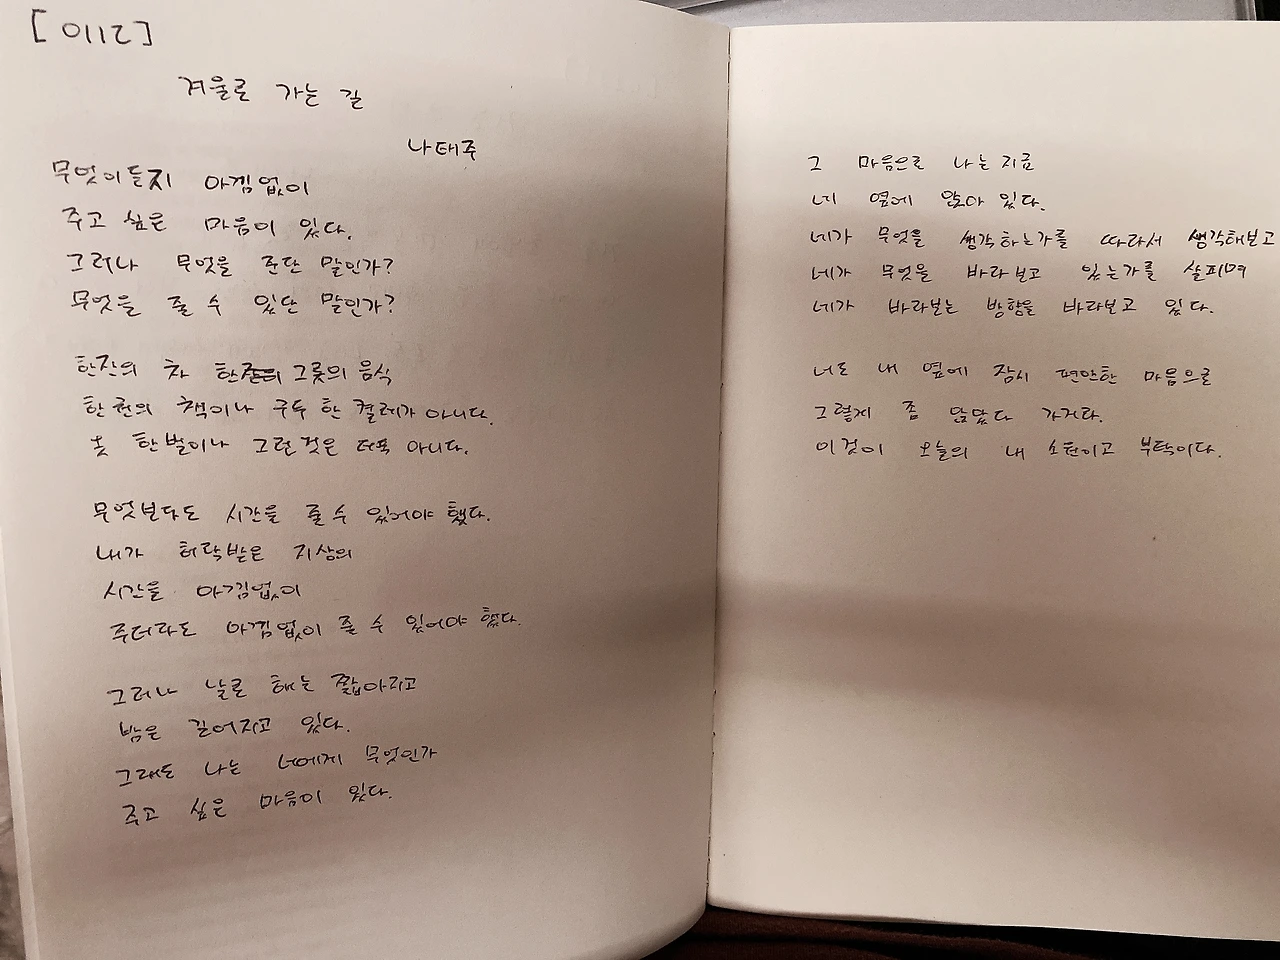 [0112]
겨울로 가는 길
나태주
무엇이든지 아낌없이
주고 싶은 마음이 있다.
그러나 무엇을 준단 말인가?
무엇을 줄 수 있단 말인가?
한잔의 차 한 그릇의 음식
한 권의 책이나 구두 한 켤레가 아니다.
옷 한 벌이나 그런 것은 더욱 아니다.
무엇보다도 시간을 줄 수 있어야 했다.
내가 허락받은 지상의
시간을 아낌없이
주더라도 아낌없이 줄 수 있어야 했다.
그러나 날로 해는 짧아지고
밤은 길어지고 있다.
그래도 나는 너에게 무엇인가
주고 싶은 마음이 있다.
그 마음으로 나는 지금
네 옆에 앉아 있다.
네가 무엇을 생각하는가를 따라서 생각해보고
네가 무엇을 바라보고 있는가를 살피며
네가 바라보는 방향을 바라보고 있다.
너도 내 옆에 잠시 편안한 마음으로
그렇게 좀 앉았다 가거라.
이것이 오늘의 내 소원이고 부탁이다.